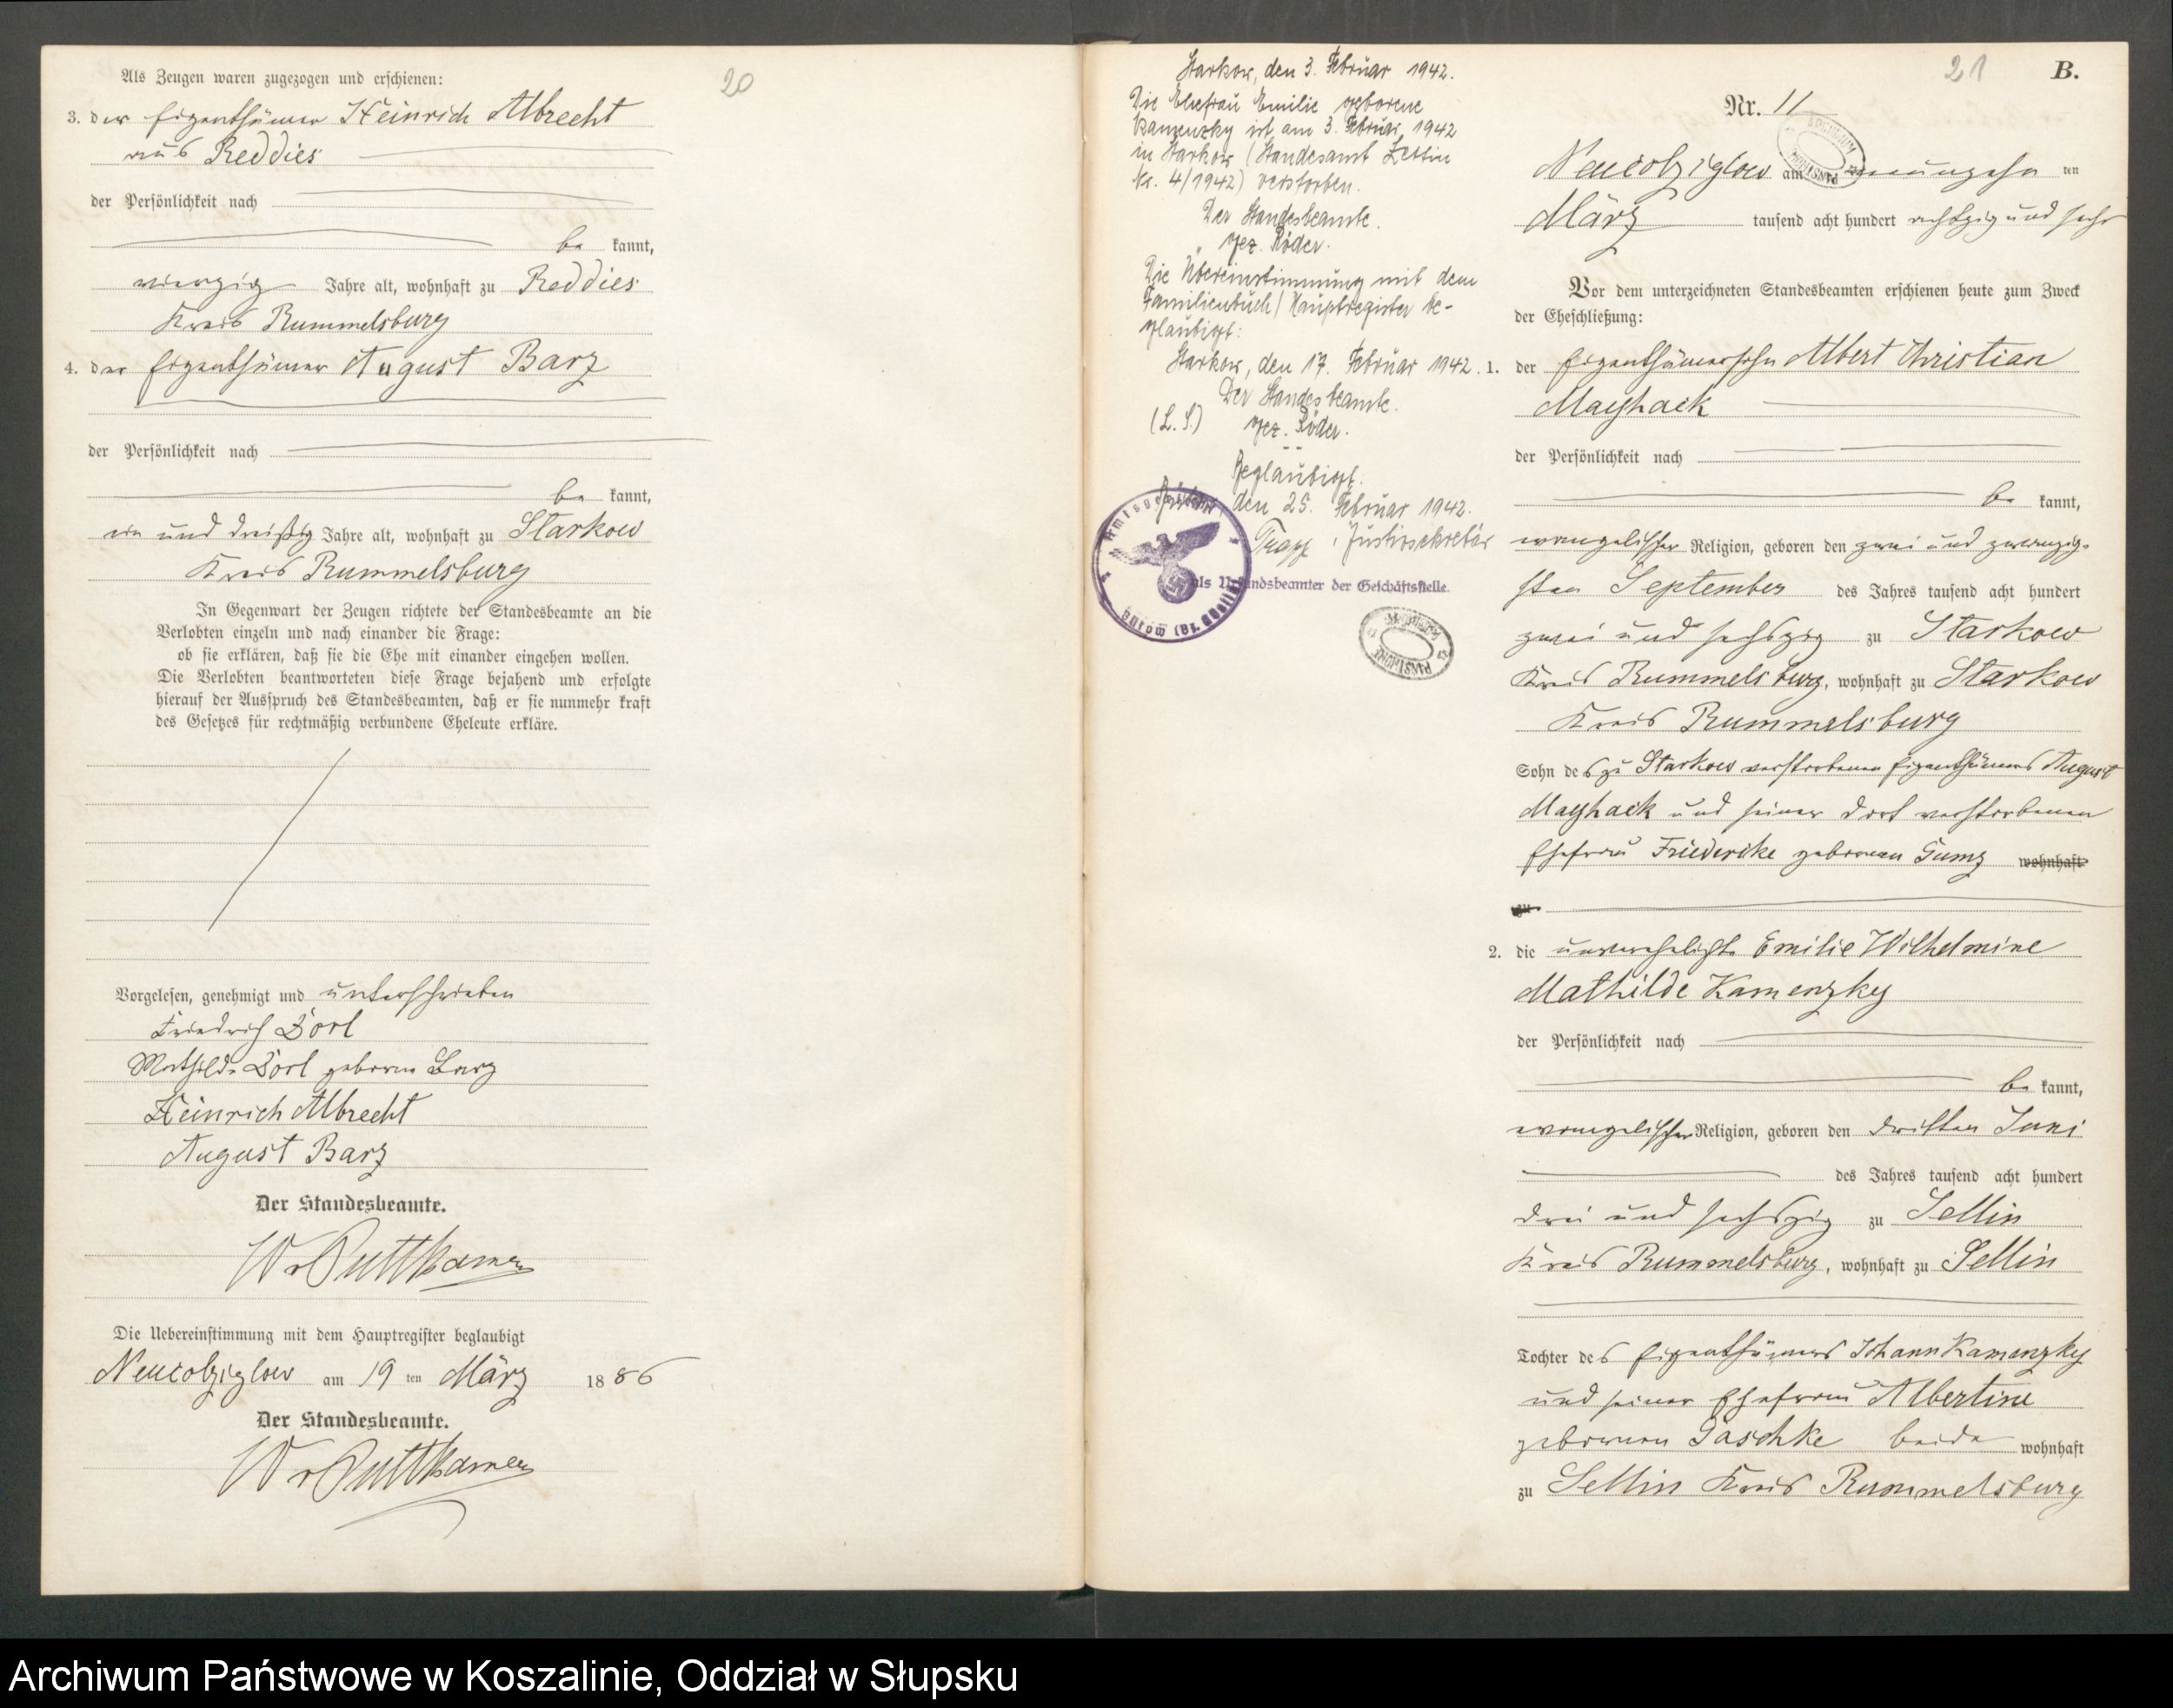 20
Als Zeugen waren zugezogen und erschienen:
3. der Eigenthümer Heinrich Albrecht
aus Reddies
der Persönlichkeit nach
be kannt,
vierzig Jahre alt, wohnhaft zu Reddies
Kreis Rummelsburg
4. der Eigenthümer August Barz
der Persönlichkeit nach
be kannt,
ein und dreißig Jahre alt, wohnhaft zu Starkow
Kreis Rummelsburg
In Gegenwart der Zeugen richtete der Standesbeamte an die
Verlobten einzeln und nach einander die Frage:
ob sie erklären, daß sie die Ehe mit einander eingehen wollen.
Die Verlobten beantworteten diese Frage bejahend und erfolgte
hierauf der Ausspruch des Standesbeamten, daß er sie nunmehr kraft
des Gesetzes für rechtmäßig verbundene Eheleute erkläre.
Vorgelesen, genehmigt und unterschrieben
Friedrich
Mathilde geborene Barz
Heinrich Albrecht
August Barz
Der Standesbeamte.
W v Puttkamer
Die Uebereinstimmung mit dem Hauptregister beglaubigt
Neucolziglow am 19 ten März 1886
Der Standesbeamte.
W v Puttkamer
Starkow, den 3. Februar 1942.
Die Ehefrau Emilie geborene
Kamenzky ist am 3. Februar 1942
in Starkow (Standesamt Zettin
Nr. 4/1942) verstorben.
Der Standesbeamte.
gez. Röder.
Die Übereinstimmung mit dem
Familienbuch/Hauptregister be-
glaubigt:
Starkow, den 17. Februar 1942.
Der Standesbeamte.
(L. S.) gez. Röder.
Beglaubigt.
Bütow, den 25. Februar 1942.
Justizsekretär
als Urkundsbeamter der Geschäftsstelle.
Amtsgericht
Bütow (Bz. Köslin)
21 B.
Nr. 11
Neucolziglow am neunzehn ten
März tausend acht hundert achtzig und sechs
Vor dem unterzeichneten Standesbeamten erschienen heute zum Zweck
der Eheschließung:
1. der Eigenthümersohn Albert Christian
Mayhack
der Persönlichkeit nach
be kannt,
evangelischer Religion, geboren den zwei und zwanzig-
sten September des Jahres tausend acht hundert
zwei und sechszig zu Starkow
Kreis Rummelsburg, wohnhaft zu Starkow
Kreis Rummelsburg
Sohn des zu Starkow verstorbenen Eigenthümers August
Mayhack und seiner dort verstorbenen
Ehefrau Friederike geborenen Gumz wohnhaft
zu
2. die unverehelichte Emilie Wilhelmine
Mathilde Kamenzky
der Persönlichkeit nach
be kannt,
evangelischer Religion, geboren den dritten Juni
des Jahres tausend acht hundert
drei und sechszig zu Sellin
Kreis Rummelsburg, wohnhaft zu Sellin
Tochter des Eigenthümers Johann Kamenzky
und seiner Ehefrau Albertine
geborenen Jaschke beide wohnhaft
zu Sellin Kreis Rummelsburg
Archiwum Państwowe w Koszalinie, Oddział w Słupsku